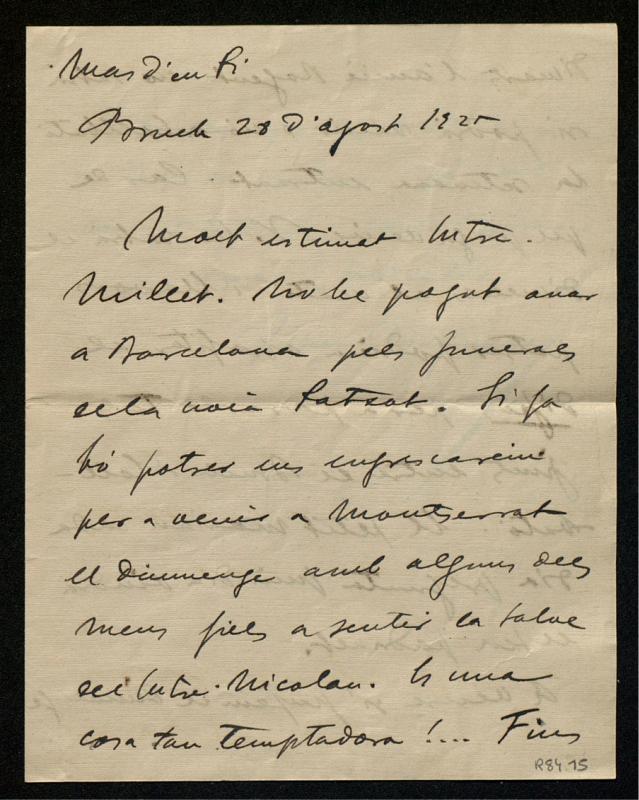 Mas d'en Pi
Bruch 28 d'agost 1925
Molt estimat Mtre.
Millet. No he pogut anar
a Barcelona pels funerals
de la noia Patxot. Si fa
bó potser ens engrescarem
per a venir a Montserrat
el diumenge amb alguns dels
meus fiels a sentir la salve
del Mtre. Nicolau. Es una
cosa tan temptadora!... Fins
R84.15